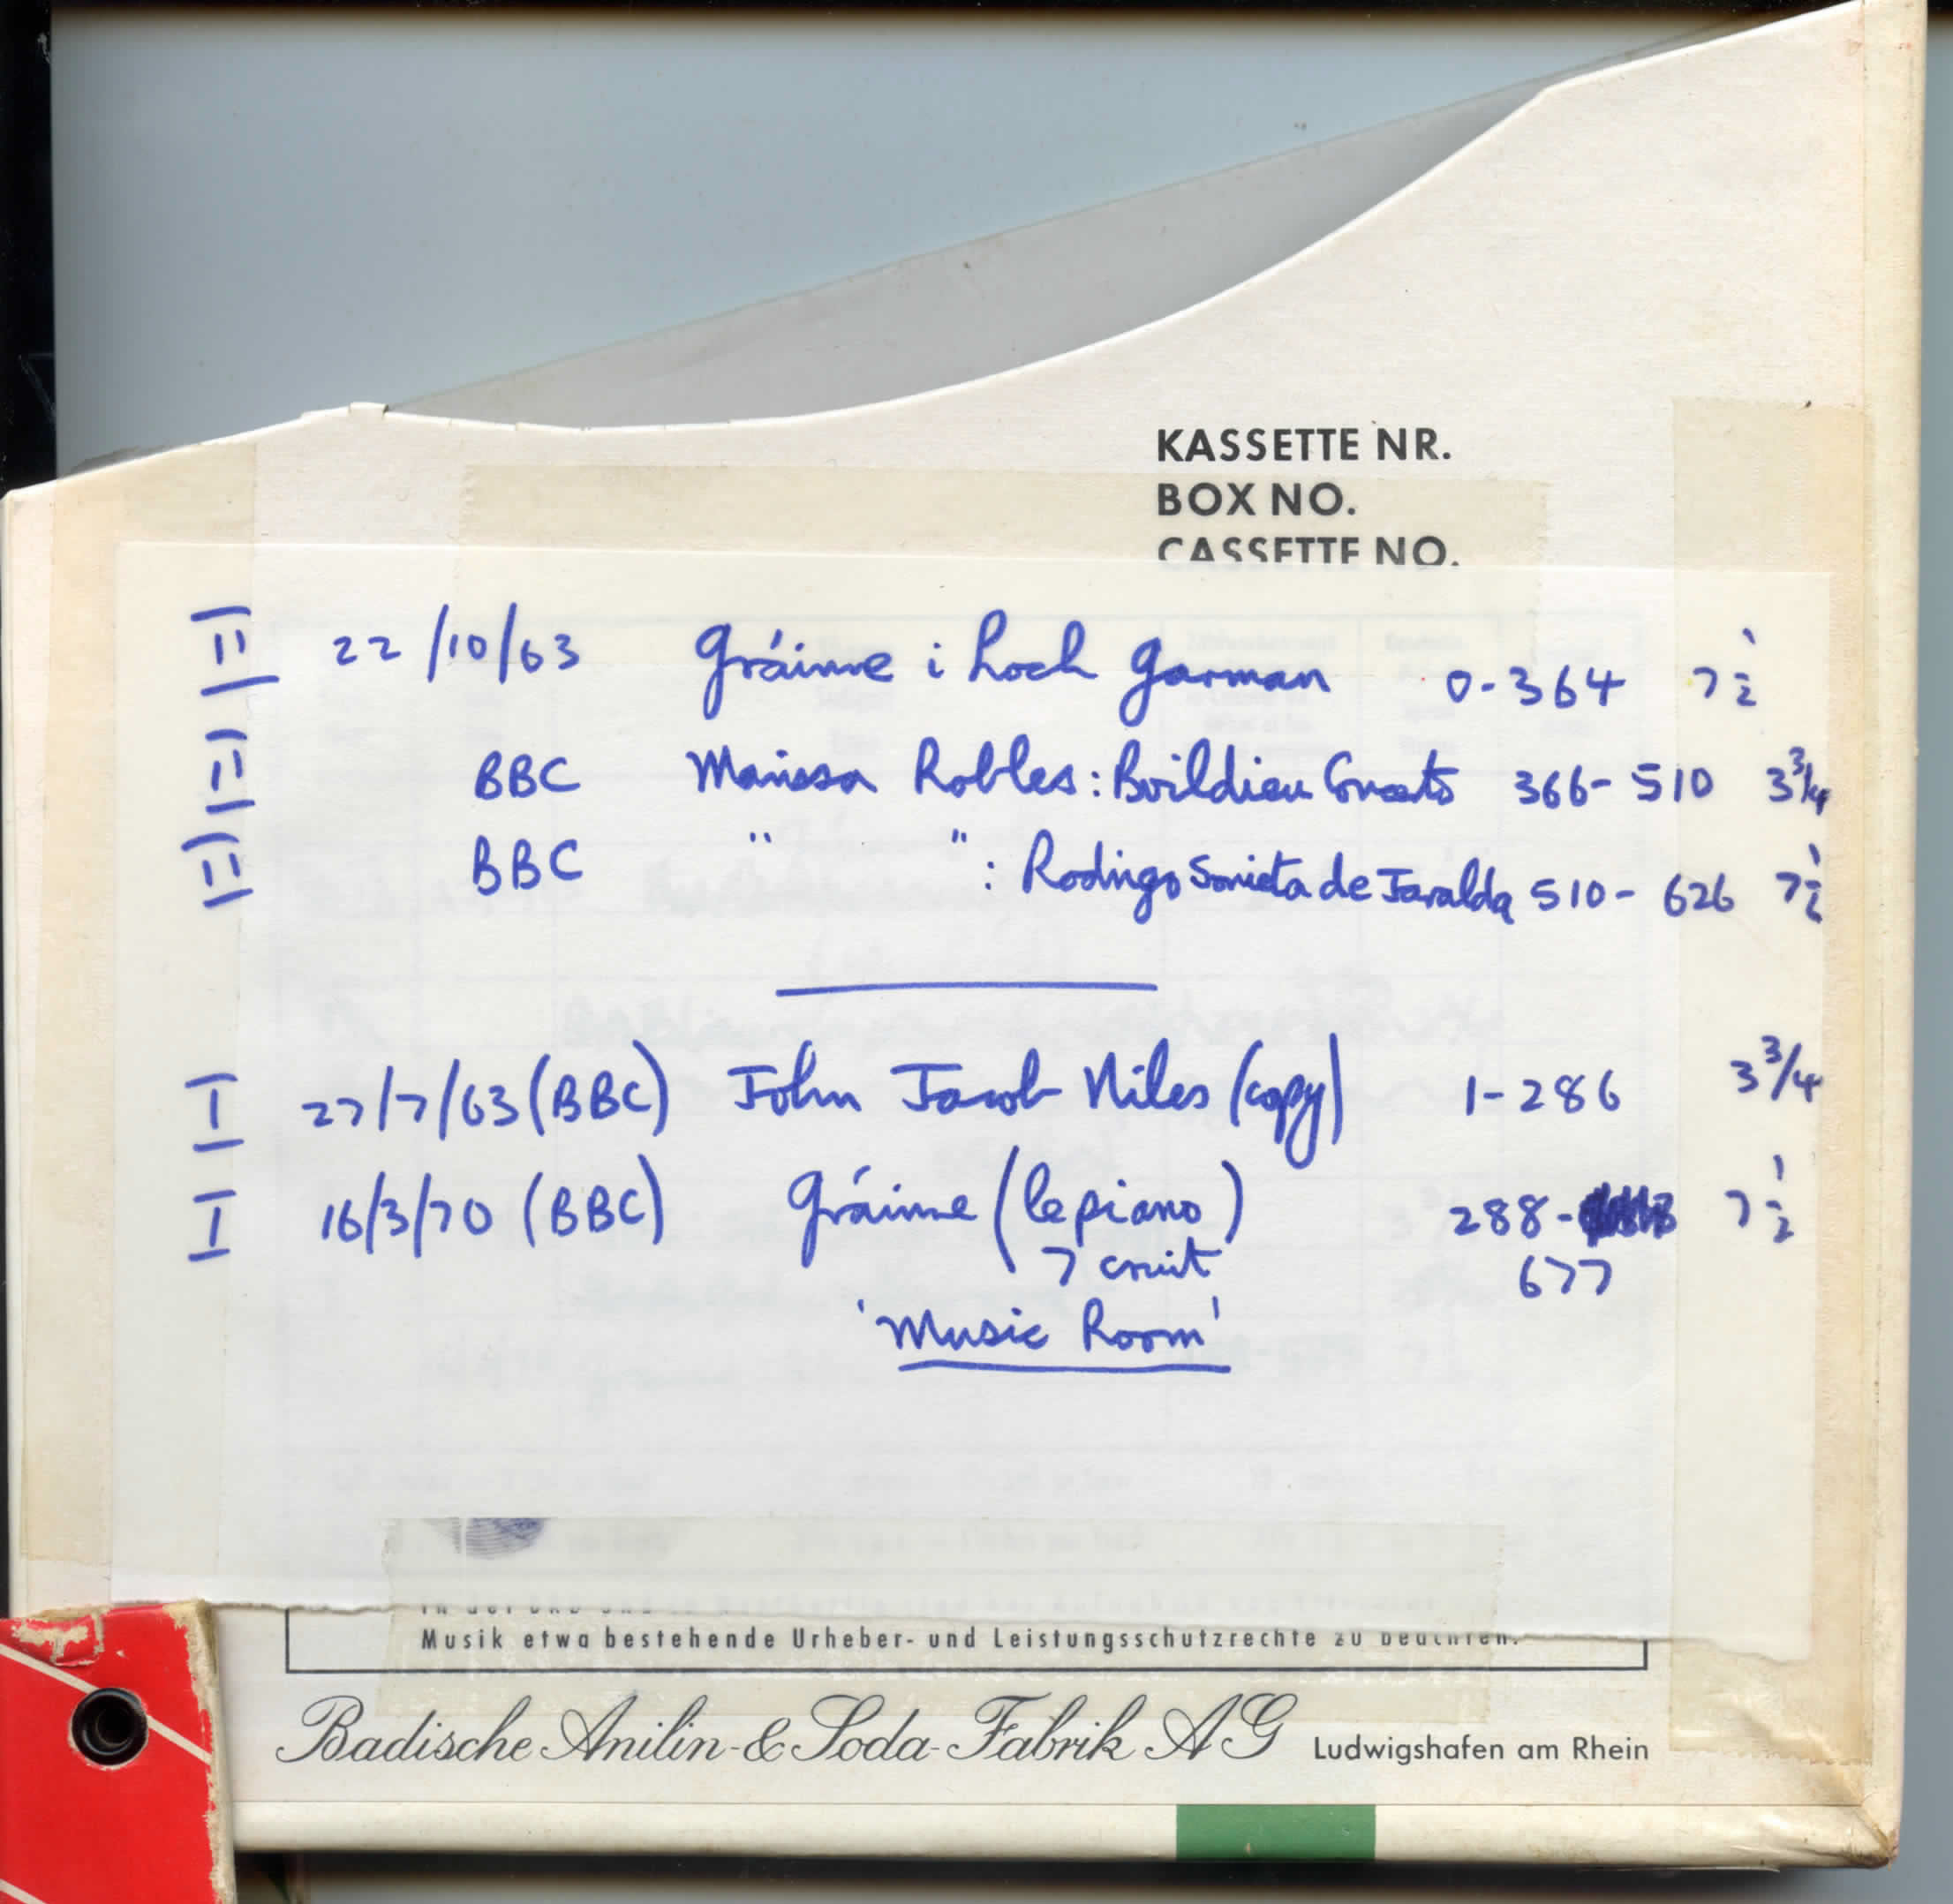 KASSETTE NR.
BOX NO.
CASSETTE NO.
II 22/10/63 Gráinne i Loch Garman 0-364 7½
II BBC Marissa Robles: Boildieu 366-510 3¾
II BBC " " : Rodrigo de 510-626 7½
I 27/7/63 (BBC) John Jacob Niles (copy) 1-286 3¾
I 16/3/70 (BBC) Gráinne (le piano) 288- 7½
7 cruit 677
'Music Room'
Musik etwa bestehende Urheber- und Leistungsschutzrechte zu beachten.
Badische Anilin- & Soda-Fabrik AG Ludwigshafen am Rhein